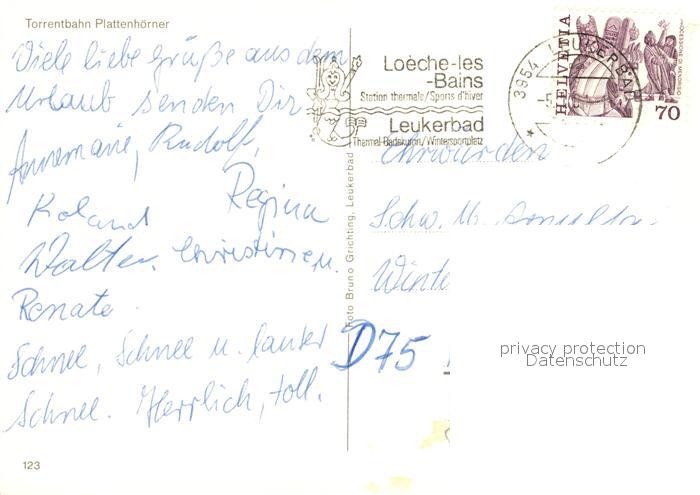 Torrentbahn Plattenhörner
Viele liebe Grüße aus dem
Urlaub senden Dir
Annemarie, Rudolf,
Regina
Roland
Walter, Christine u.
Renate.
Schnee, Schnee u. lauter
Schnee. Herrlich, toll.
123
Foto Bruno Grichting, Leukerbad
Loèche-les
-Bains
Station thermale/Sports d'hiver
Leukerbad
Thermal-Badekurort/Wintersportplatz
3954 LEUKERBAD
HELVETIA
PROCESSIONE DI MENDRISIO
70
Ehrwürden
Schw. M.
Winte
D75
privacy protection
Datenschutz